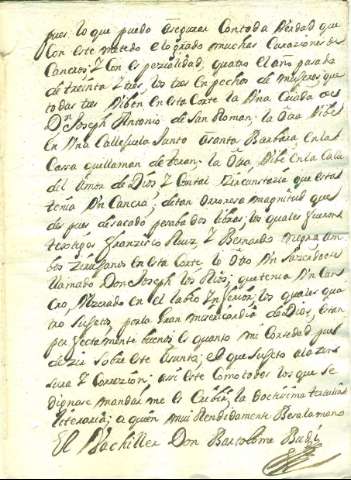 pues, lo que puedo asegurar con toda Verdad que
con este metodo e logrado muchas Curaziones de
Cancros; Y con espezialidad, quatro el año pasado
de treinta y tres, los tres en pechos de mujeres, que
todas tres Viben en esta Corte la Una Cuñada de
Dn Joseph Antonio de San Roman; la otra Vibe
en Una Callejuela junto a Santa Barbara en la
Casa que llaman de; la Otra Vibe en la Calle
del Amor de Dios Y con tal Zircunstanzia que esta
tenia Un Cancro, de tan orrorosa magnitud que
des pues de sacado pesaba dos libras; los quales fueron
testigos Franzisco Ruiz Y Bernardo Negra am
bos Zirujanos en esta Corte. lo Otro Un Sazerdote
llamado Don Joseph los Rios; que tenia Un Can
cro, Ulzerado en el labio Inferior; los quales qua
tro Sujetos, por la Gran misericordia de Dios, estan
perfectamente buenos es quanto mi Cortedad pue
de dezir sobre este Asunto; el que Sujeto a la zen
sura Y Correzion; asi este como todos los que se
dignare mandar me es Cribir, la Doctisima tertulia
literaria; a quien mui Rendidamente Besa la mano
El Bachiller Don Bartolome